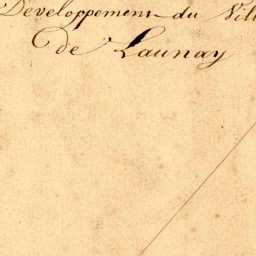 Developpement du Vill
de Launay